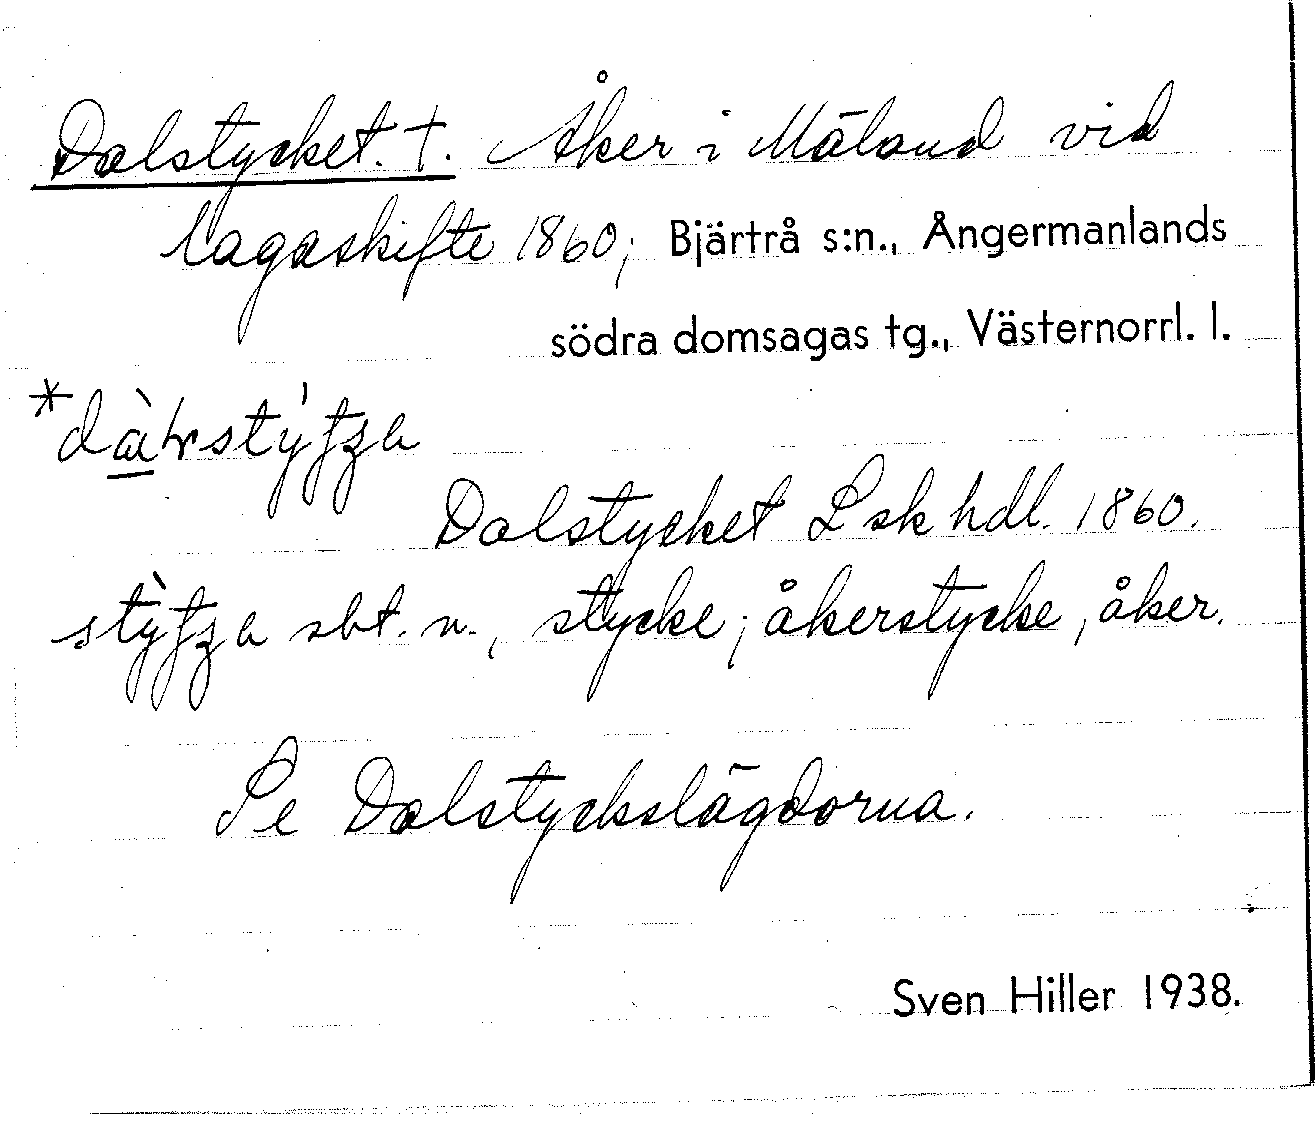 Dalstycket. †. Åker i Mäland vid
lagaskifte 1860; Bjärtrå s:n., Ångermanlands
södra domsagas tg., Västernorrl. l.
Dalstycket Lsk hdl. 1860.
sbt. n., stycke; åkerstycke, åker.
Se Dalstyckslägdorna.
Sven Hiller 1938.